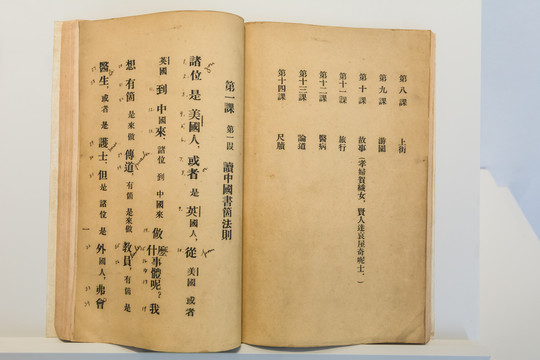 第八課　上街
第九課　游園
第十課　故事(孝婦賀織女，賢人達哀屋奇呢士。)
第十一課　旅行
第十二課　醫病
第十三課　論道
第十四課　尺牘
第一課　第一段　讀中國書箇法則
諸位是美國人，或者是英國人，從美國或者
英國到中國來，諸位到中國來做什麼事體呢？我
想有箇是來做傳道，有箇是來做教員，有箇是
醫生，或者是護士，但是諸位是外國人，弗會
一